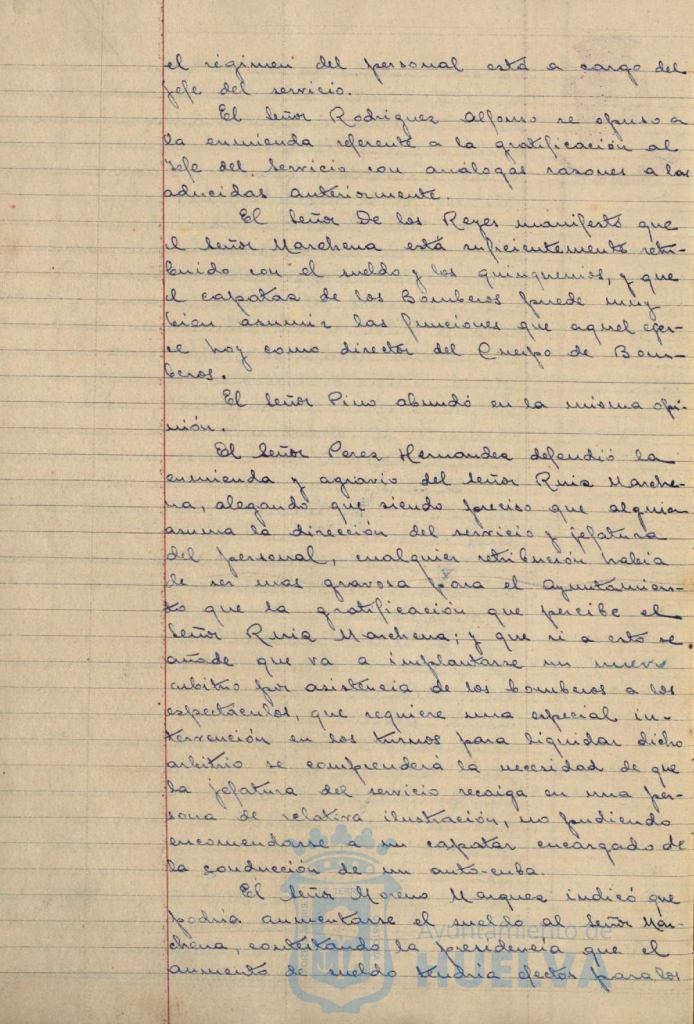 el régimen del personal está a cargo del
jefe del servicio.
El Señor Rodriguez Alfonso se opuso a
la enmienda referente a la gratificación al
Jefe del Servicio con análogas razones a las
aducidas anteriormente.
El Señor De los Reyes manifestó que
el Señor Marchena está suficientemente retri-
buido con el sueldo y los quinquenios, y que
el capataz de los Bomberos puede muy
bien asumir las funciones que aquel ejer-
ce hoy como director del Cuerpo de Bom-
beros.
El Señor Pino abundó en la misma opi-
nión.
El Señor Perez Hernandez defendió la
enmienda y agravio del Señor Ruiz Marche-
na, alegando que siendo preciso que alguien
asuma la dirección del servicio y jefatura
del personal, cualquier retribución habia
de ser mas gravosa para el Ayuntamien-
to que la gratificación que percibe el
Señor Ruiz Marchena; y que si a esto se
añade que va a implantarse un nuevo
arbitrio por asistencia de los bomberos a los
espectáculos, que requiere una especial in-
tervención en los turnos para liquidar dicho
arbitrio se comprenderá la necesidad de que
la jefatura del servicio recaiga en una per-
sona de relativa ilustración, no pudiendo
encomendarse a un capataz encargado de
la conducción de un auto-cuba.
El Señor Moreno Marquez indicó que
podria aumentarse el sueldo al Señor Mar-
chena, contestando la presidencia que el
aumento de sueldo tendria efector para los
Ayuntamiento de
HUELVA